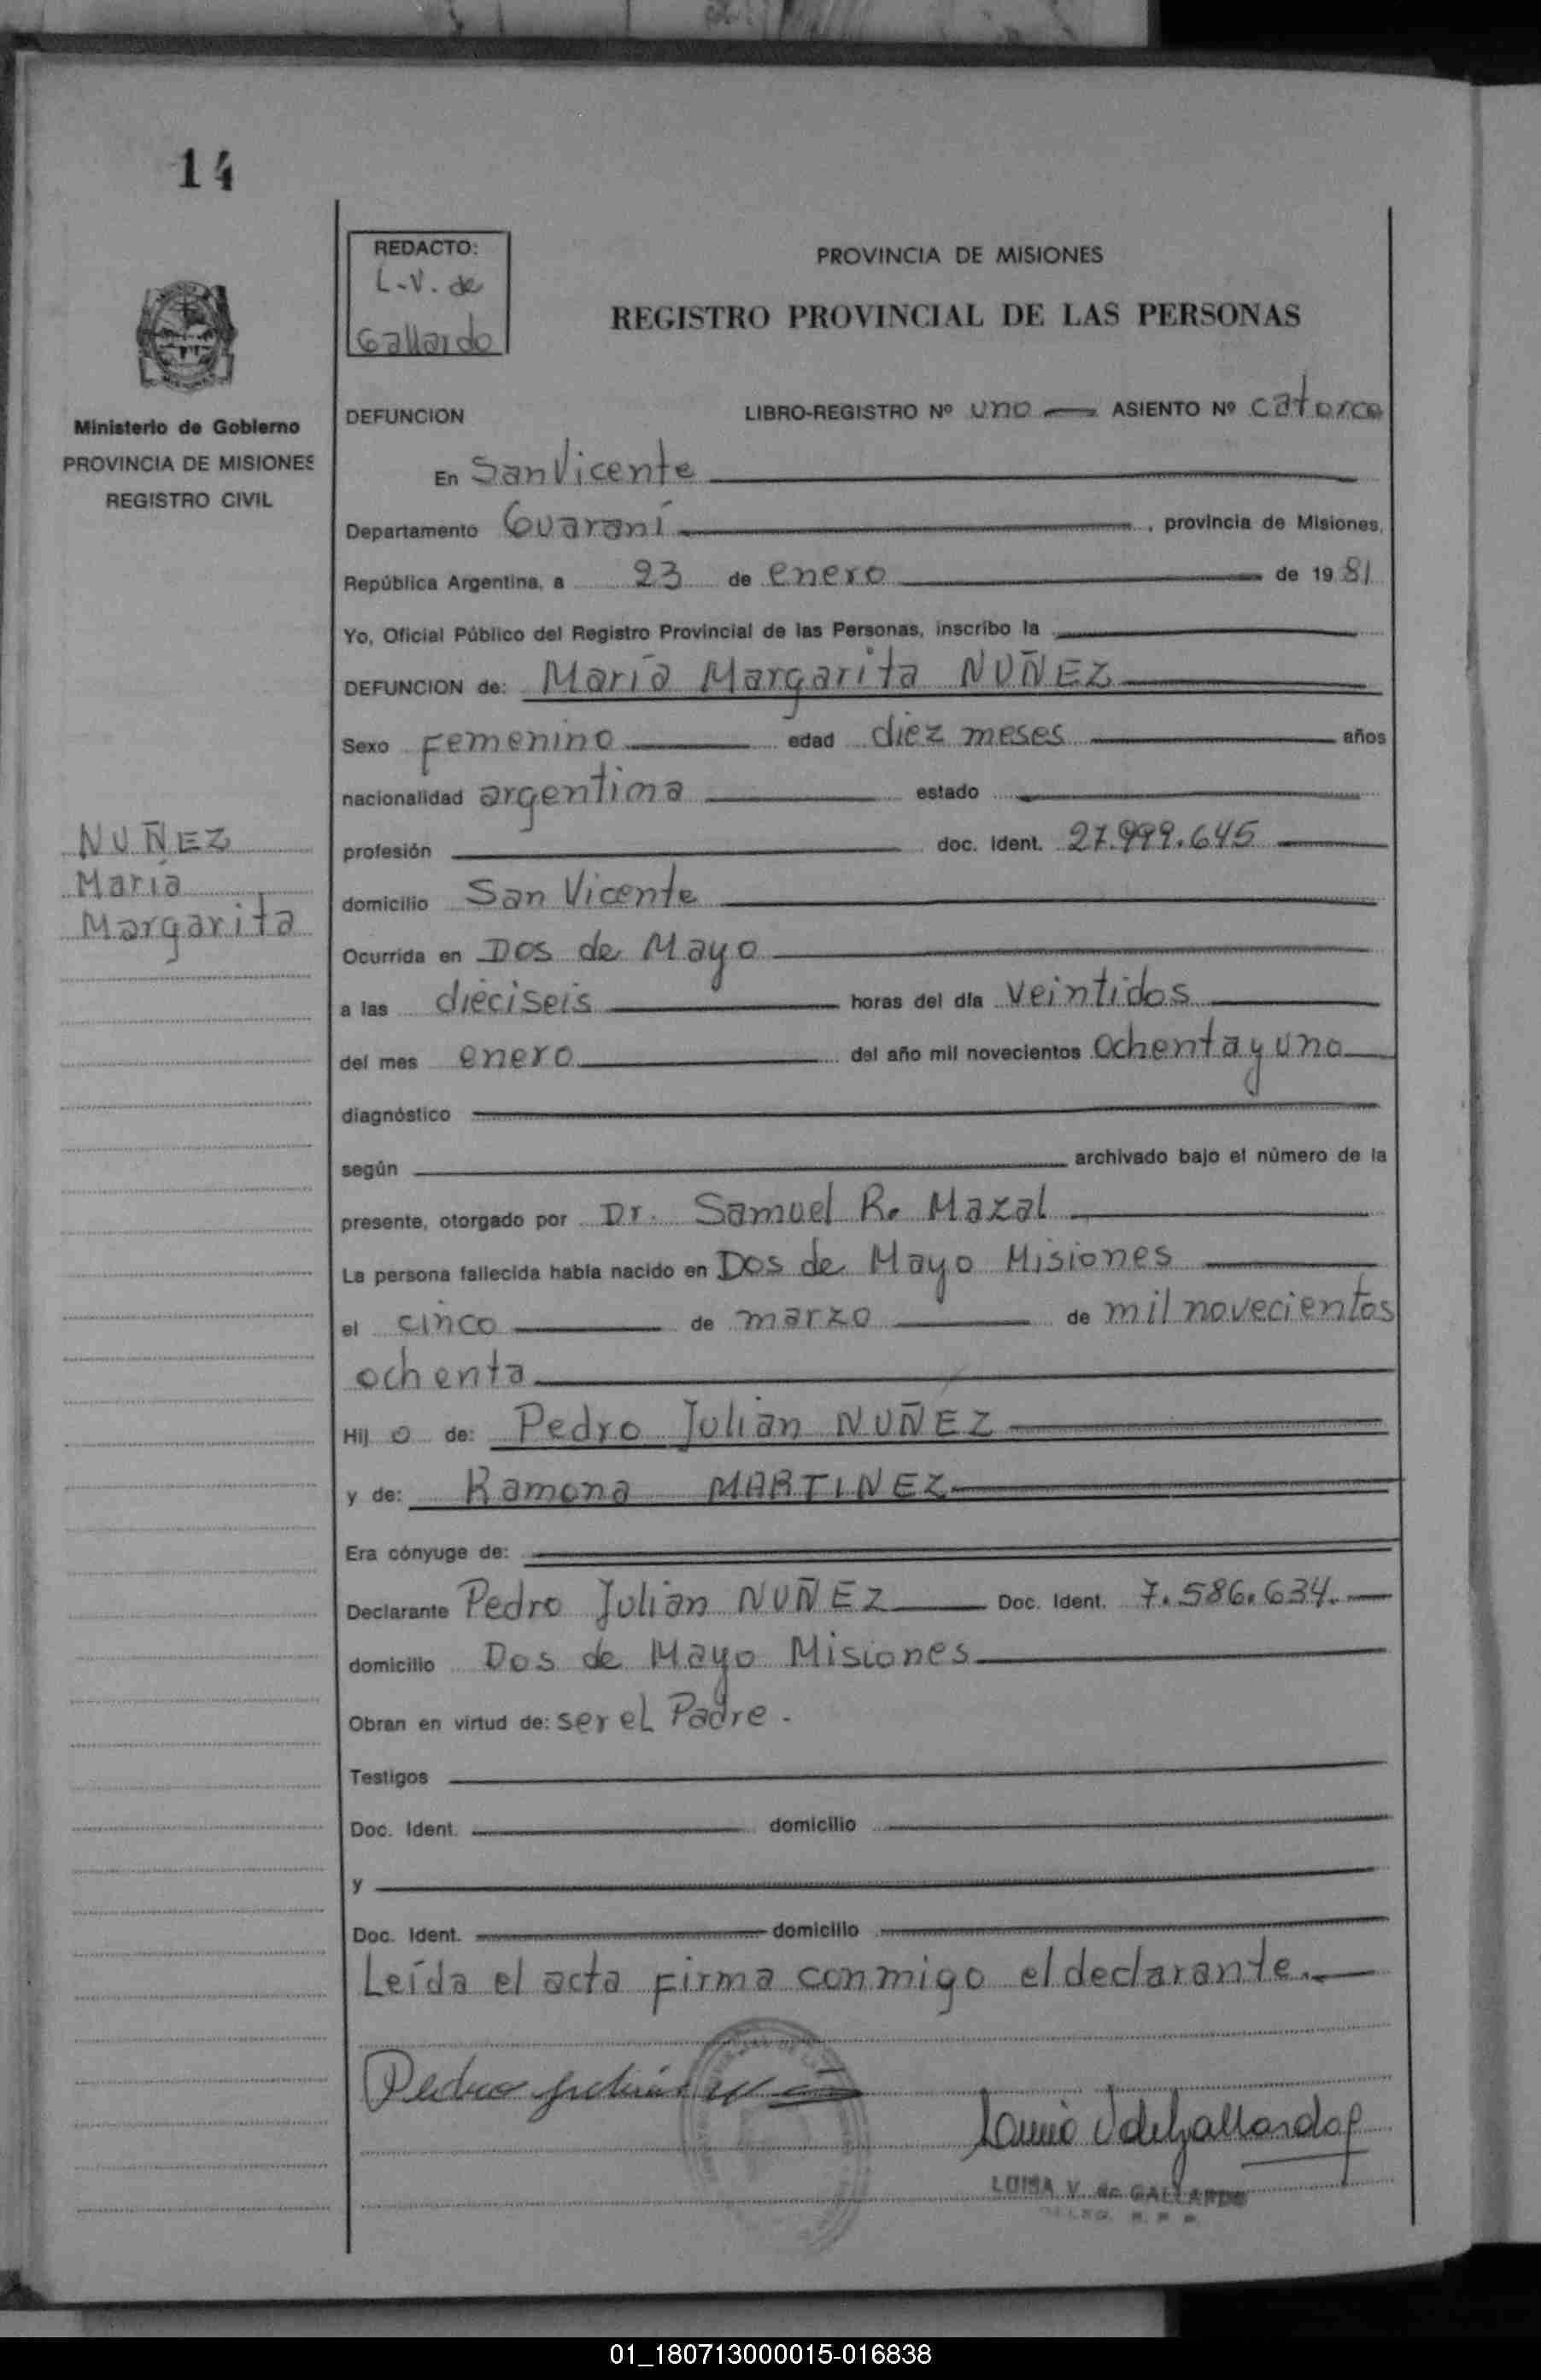 14
REDACTO:
L.V. de
Gallardo
PROVINCIA DE MISIONES
REGISTRO PROVINCIAL DE LAS PERSONAS
Ministerio de Gobierno
PROVINCIA DE MISIONES
REGISTRO CIVIL
NUÑEZ
María
Margarita
DEFUNCION LIBRO-REGISTRO Nº uno ASIENTO Nº catorce
En San Vicente
Departamento Guaraní, provincia de Misiones,
República Argentina, a 23 de enero de 1981
Yo, Oficial Público del Registro Provincial de las Personas, inscribo la
DEFUNCION de: María Margarita NUÑEZ
Sexo Femenino edad diez meses años
nacionalidad argentina estado
profesión doc. Ident. 27.999.645
domicilio San Vicente
Ocurrida en Dos de Mayo
a las dieciseis horas del día veintidos
del mes enero del año mil novecientos ochenta y uno
diagnóstico
según archivado bajo el número de la
presente, otorgado por Dr. Samuel R. Mazal
La persona fallecida había nacido en Dos de Mayo Misiones
el cinco de marzo de mil novecientos
ochenta
Hij o de: Pedro Julian NUÑEZ
y de: Ramona MARTINEZ
Era cónyuge de:
Declarante Pedro Julian NUÑEZ Doc. Ident. 7.586.634.
domicilio Dos de Mayo Misiones
Obran en virtud de: ser el Padre.
Testigos
Doc. Ident. domicilio
y
Doc. Ident. domicilio
Leída el acta firma conmigo el declarante.
LUISA V. de GALLARDO
01_180713000015-016838